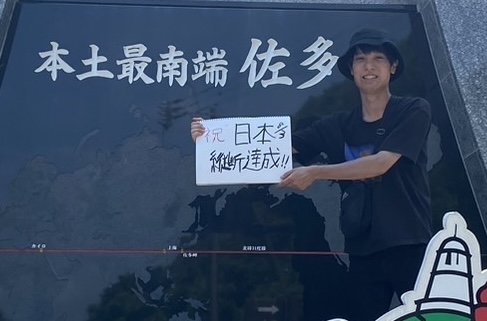 本土最南端 佐多
祝 日本
縦断達成!!
カイロ
上海
佐多岬
北緯31度線